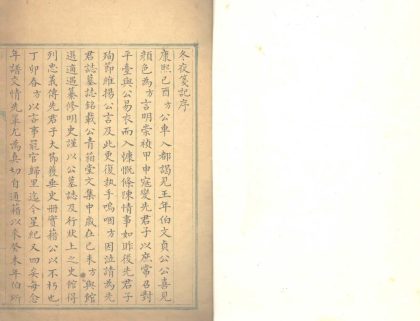 冬夜箋記序
康熙己酉方公車入都謁見王年伯文貞公公喜見
顏色為方言明崇禎甲申寇變先君子以庶常召對
平臺與公易衣而入慷慨條陳情事如昨後先君子
殉節維揚公言及此更復執手嗚咽方因泣請為先
君誌墓誌銘載公青箱堂文集中歲在己未方與館
選適遇纂修明史謹以公墓誌及行狀上之史館得
列忠義傳先君子大節獲垂史冊實藉公以不朽也
丁卯春方以言事罷官歸里迄今星紀又四矣每念
年譜交情先輩尤為真切自通籍以來癸未年伯所